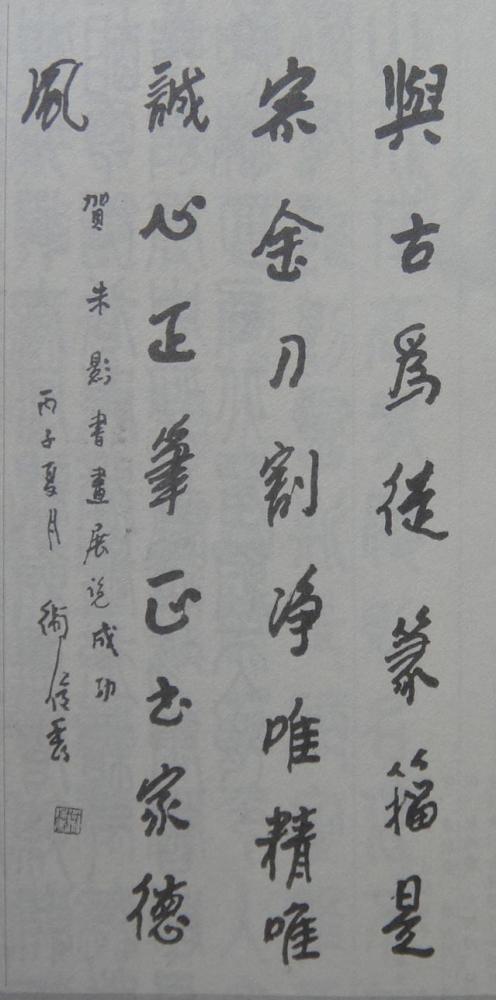 與古為徒篆籀是
宗金刀割净唯精唯
誠心正筆正書家德
風
賀朱影書畫展览成功
丙子夏月